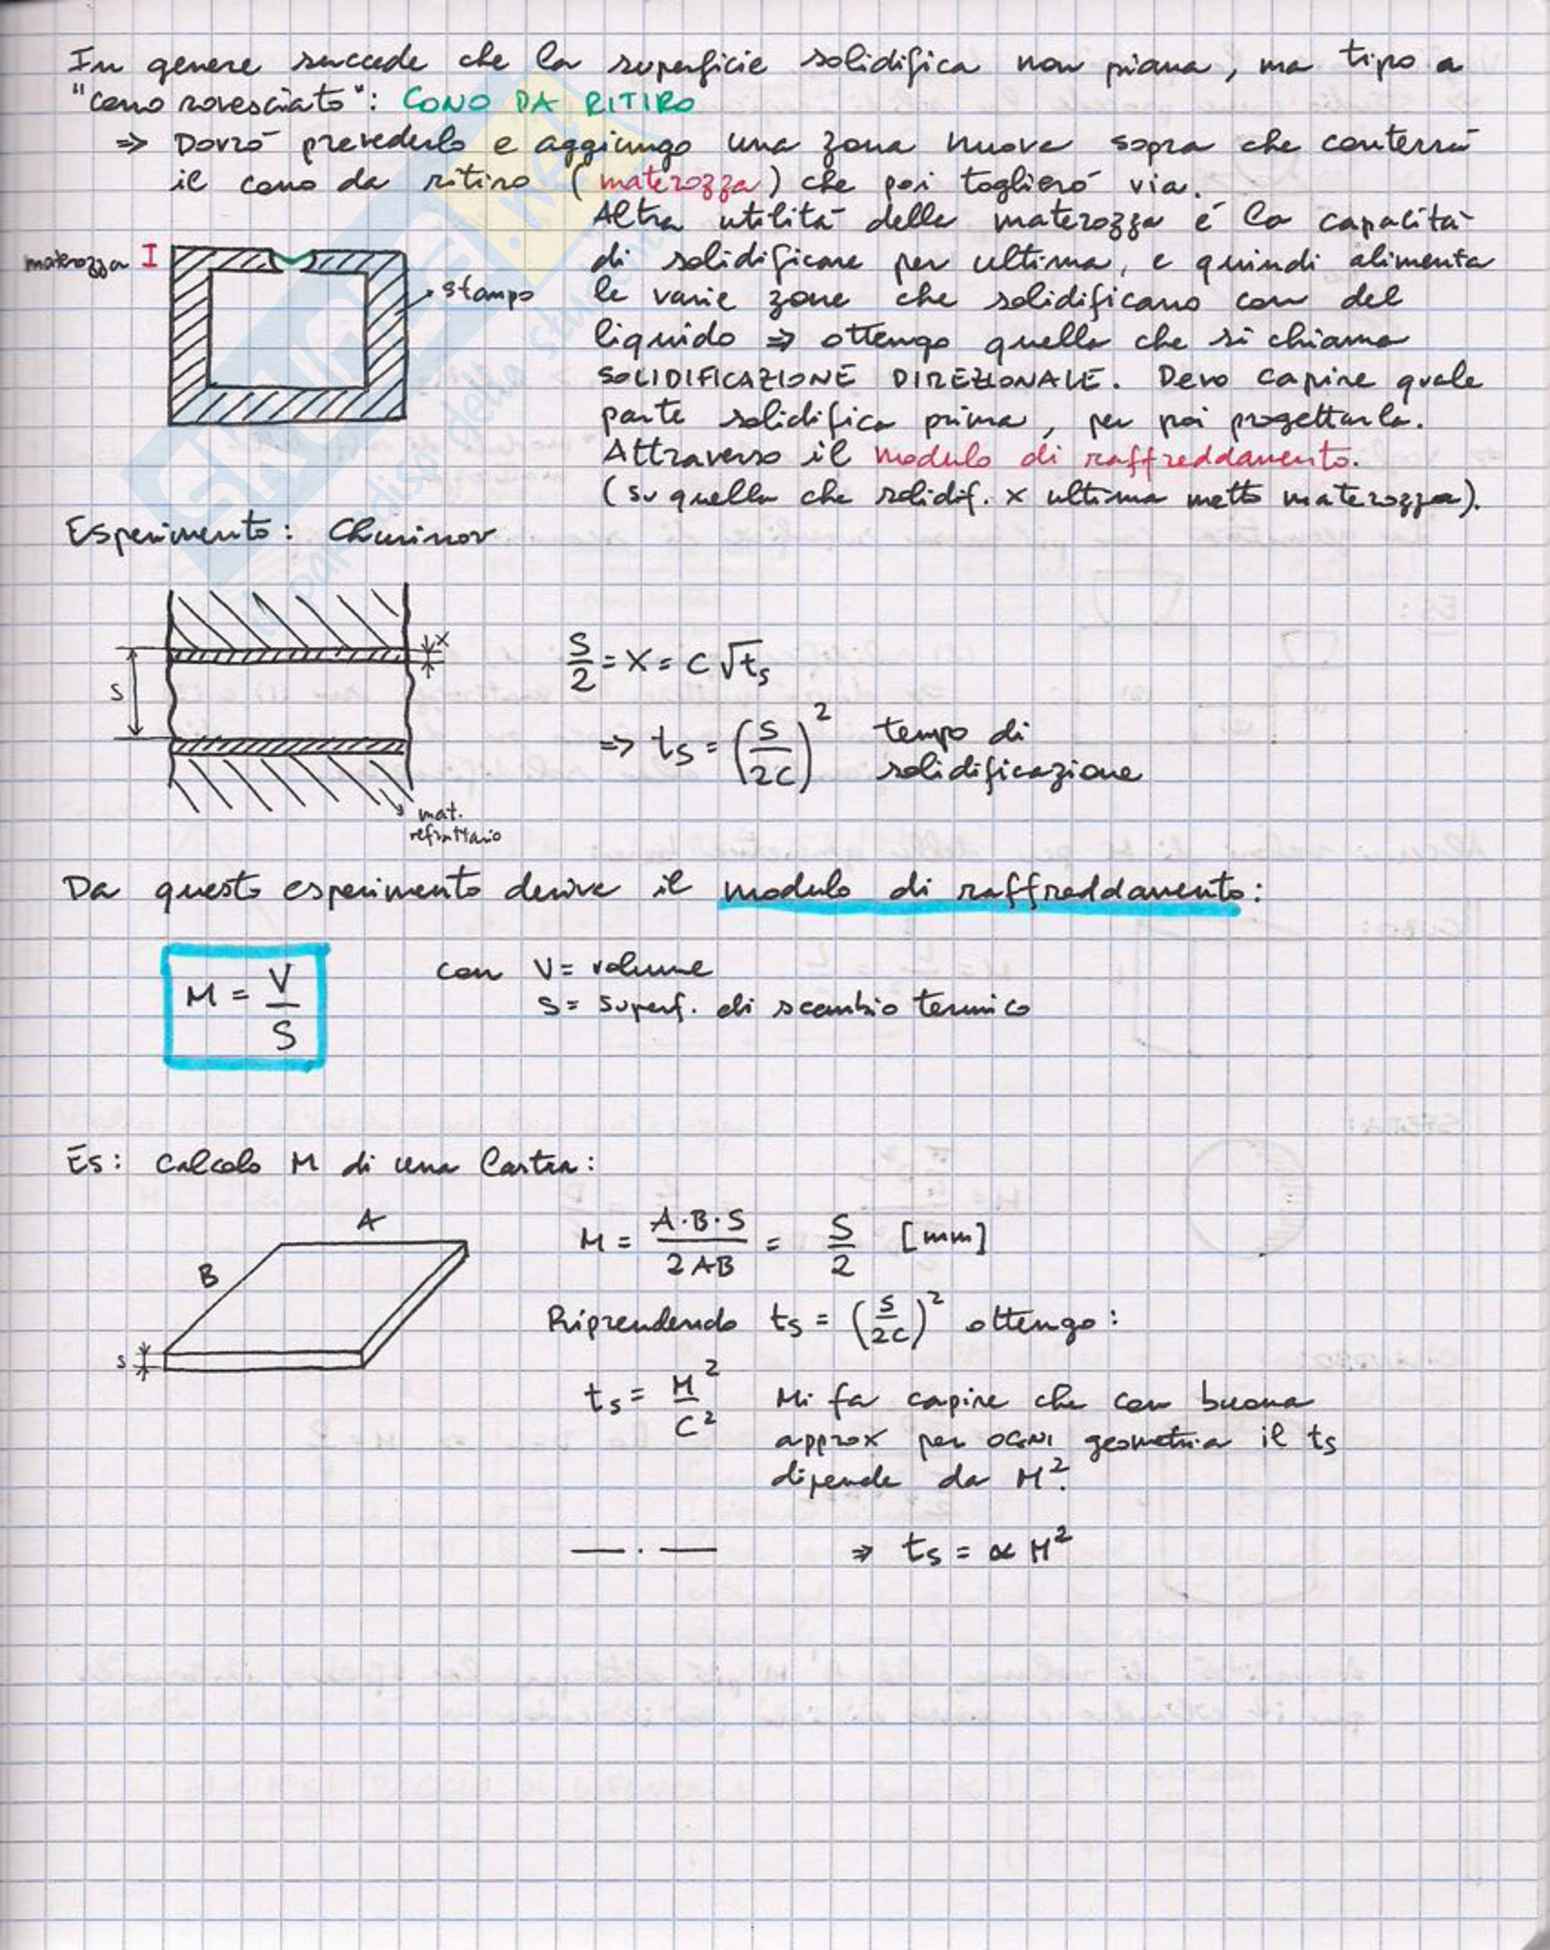 In genere succede che la superficie solidifica non piana, ma tipo a
"cono rovesciato": CONO DA RITIRO
⇒ Dovrò prevederlo e aggiungo una zona nuova sopra che conterrà
il cono da ritiro (materozza) che poi toglierò via.
Altra utilità della materozza è la capacità
di solidificare per ultima, e quindi alimenta
le varie zone che solidificano con del
liquido ⇒ ottengo quella che si chiama
SOLIDIFICAZIONE DIREZIONALE. Devo capire quale
parte solidifica prima, per poi progettarla.
Attraverso il modulo di raffreddamento.
(su quella che solidif. x ultima metto materozza).
materozza I
stampo
Esperimento: Churinov
x
s
mat.
refrattario
S/2 = X = C √ts
⇒ ts = (S/2C)² tempo di
solidificazione
Da questo esperimento derive il modulo di raffreddamento:
M = V/S
con V = volume
S = superf. di scambio termico
Es: Calcolo M di una lastra:
A
B
s
M = A·B·S/2AB = S/2 [mm]
Riprendendo ts = (S/2C)² ottengo:
ts = M²/C² Mi fa capire che con buona
approx per OGNI geometria il ts
dipende da M².
— . — ⇒ ts = α M²
SKUOLA.NET
il paradiso dello studente